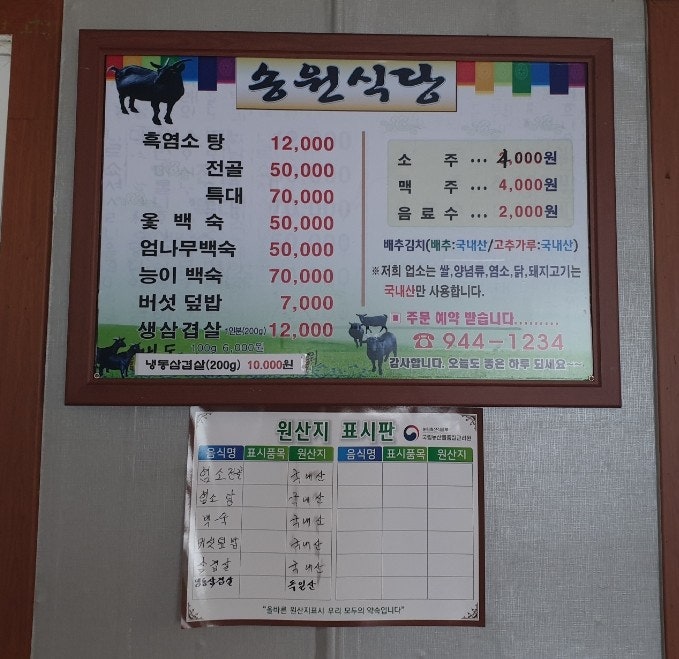 송원식당
흑염소 탕 12,000
전골 50,000
특대 70,000
옻 백 숙 50,000
엄나무백숙 50,000
능이 백숙 70,000
버섯 덮밥 7,000
생삼겹살 1인분(200g) 12,000
100g 6,000원
냉동삼겹살(200g) 10.000원
소 주 ... 4,000원
맥 주 ... 4,000원
음료수 ... 2,000원
배추김치(배추:국내산/고추가루:국내산)
※저희 업소는 쌀,양념류,염소,닭,돼지고기는
국내산만 사용합니다.
■ 주문 예약 받습니다......
☎ 944-1234
감사합니다. 오늘도 좋은 하루 되세요~~
원산지 표시판
국립농산물품질관리원
음식명 표시품목 원산지 음식명 표시품목 원산지
염소전골 국내산
염소탕 국내산
백숙 국내산
버섯덮밥 국내산
삼겹살 국내산
냉동삼겹살 독일산
"올바른 원산지표시 우리 모두의 약속입니다"